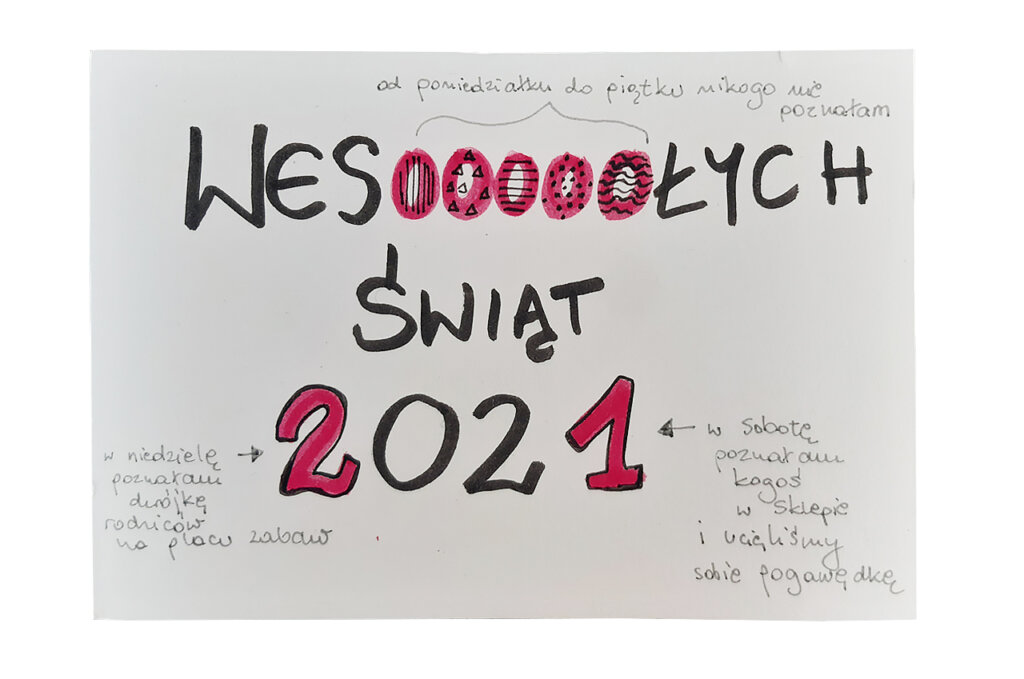 od poniedziałku do piątku nikogo nie
poznałam
WESOOOOOŁYCH
ŚWIĄT
2021
w niedzielę
poznałam
dwójkę
rodziców
na placu zabaw
w sobotę
poznałam
kogoś
w sklepie
i ucięliśmy
sobie pogawędkę